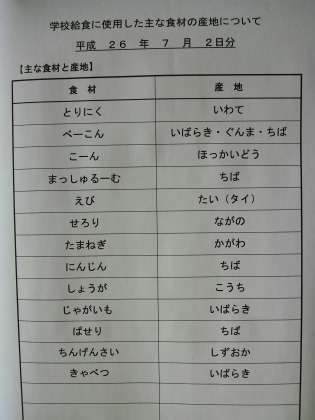 学校給食に使用した主な食材の産地について
平成 26 年 7 月 2日分
【主な食材と産地】
食 材 産 地
とりにく いわて
べーこん いばらき・ぐんま・ちば
こーん ほっかいどう
まっしゅるーむ ちば
えび たい（タイ）
せろり ながの
たまねぎ かがわ
にんじん ちば
しょうが こうち
じゃがいも いばらき
ぱせり ちば
ちんげんさい しずおか
きゃべつ いばらき